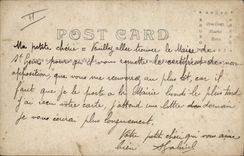 POST CARD
Ma petite chérie = Veuillez aller trouver le Maire de
St pour qu'il vous remette le certificat de non
opposition, que vous me renverrez au plus tôt, car il
faut que je le porte à la Mairie lundi le plus tard
J'ai reçu votre carte, j'attend une lettre demain
je vous écrirai plus longuement.
Votre petit chéri qui vous aime
bien